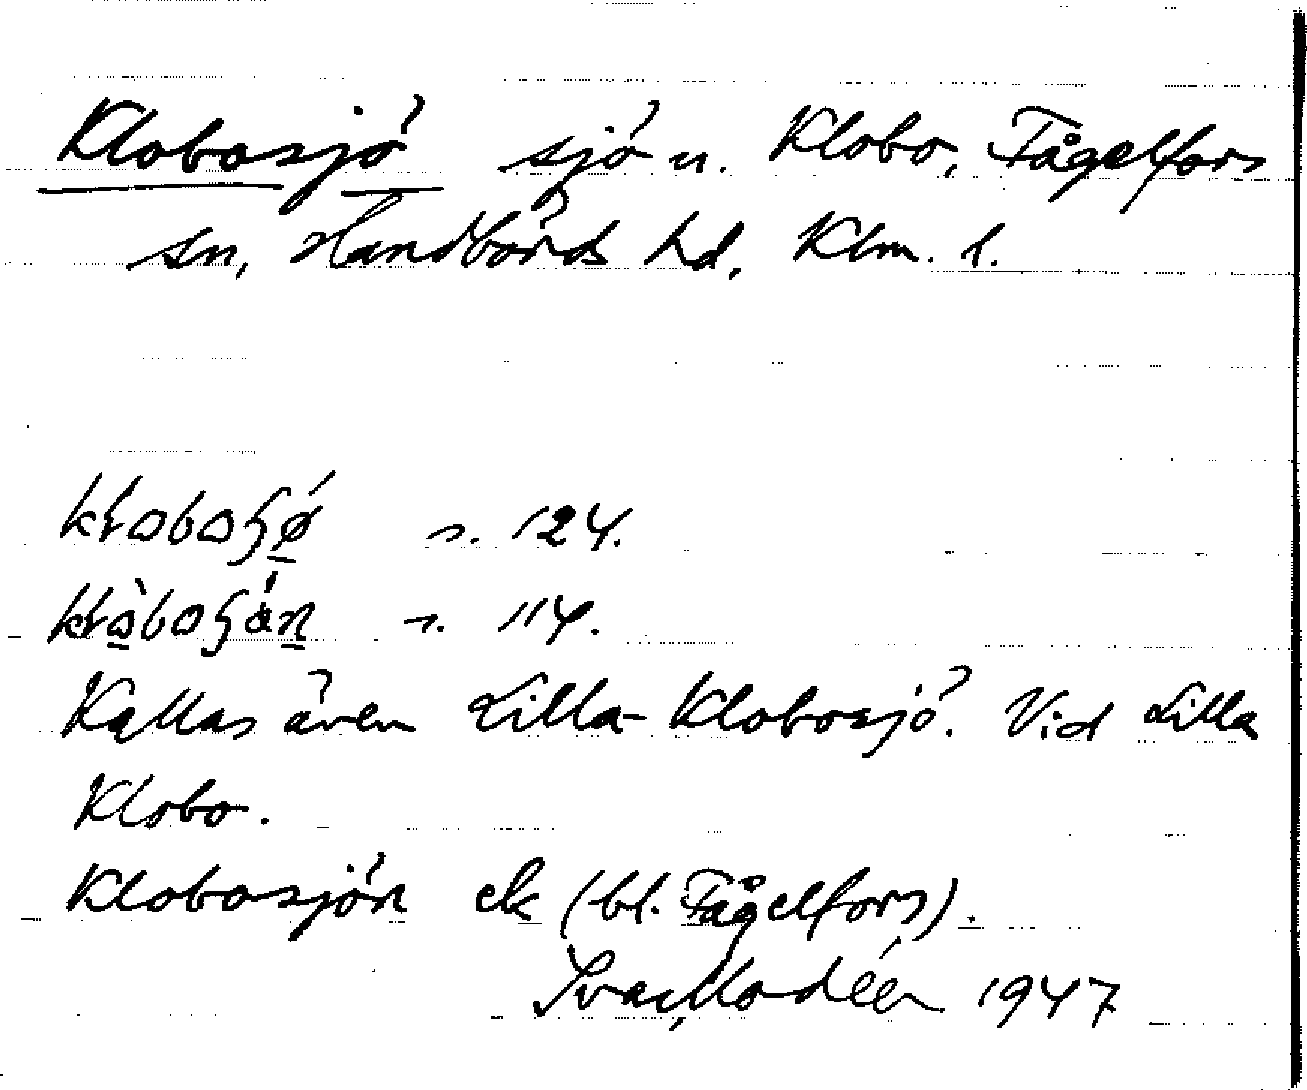 Klobosjö sjö v. Klobo, Fågelfors
sn, Handbörds hd, Klm. l.
s. 124.
s. 114.
Kallas även Lilla-Klobosjö. Vid Lilla
Klobo.
Klobosjön ek (bl. Fågelfors).
Ivar Modéer 1947